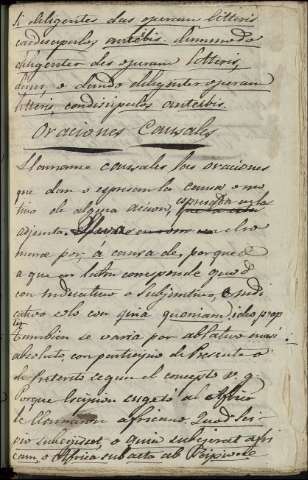 Si diligentes das operam litteris
condiscipulos anteibis. dummodo
diligenter des operam litteris,
dum, o dando diligenter operam
litteris condiscipulos anteibis.
Oraciones Causales
Llamamos causales las oraciones
que dan o espresan la causa o mo
tibo de alguna acion, espresada en la
adjunta.
nace por á causa de, porque á
a que en latin corresponde quod
con Indicativo o Subjuntivo, o indi
cativo solo con quia quoniam, ideo prop
tambien se varia por ablativo
absoluto, con participio de Presente o
de Preterito segun el concepto v. g.
Porque Escipion sugetó al Africa
le llamaron africano Quod Sci
pio subegisset, o quia subegerat afri
cam, o Africa subacta ab Scipione